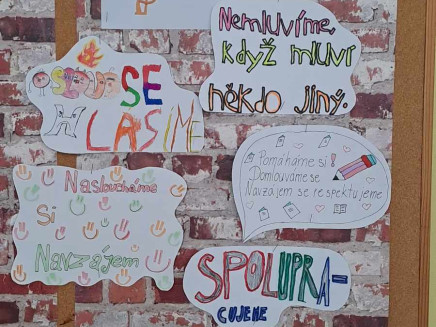 Nemluvíme,
když mluví
někdo jiný.
SE
HLASÍME
Pomáháme si!
Domlouváme se
Navzájem se respektujeme
Nasloucháme
Si
Navzájem
SPOLUPRA-
CUJEME